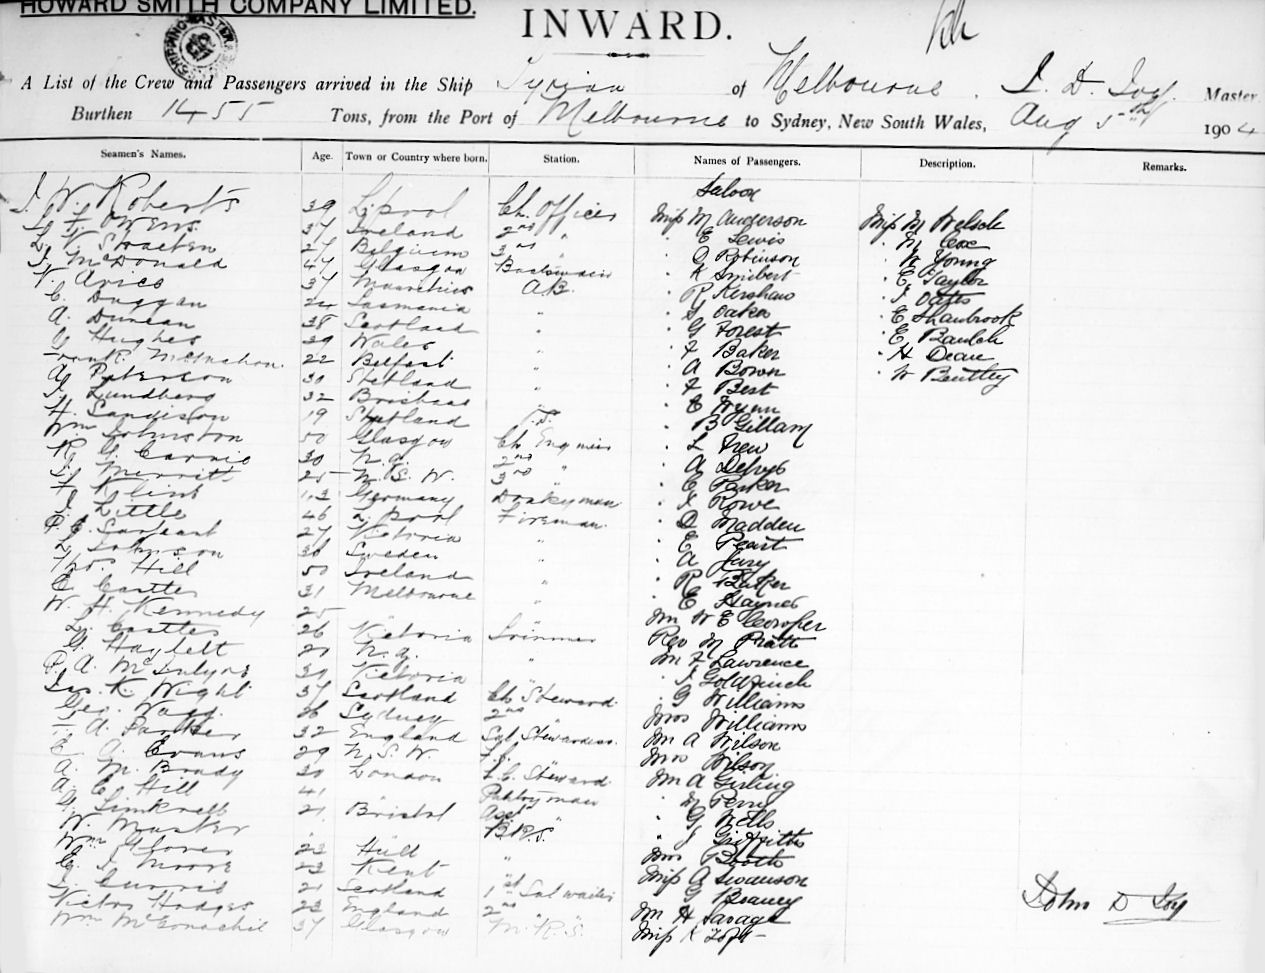 HOWARD SMITH COMPANY LIMITED.
INWARD.
A List of the Crew and Passengers arrived in the Ship Tyrian of Melbourne, J. D. Joy Master
Burthen 1455 Tons, from the Port of Melbourne to Sydney, New South Wales, Aug 5th 1904
Seamen's Names. Age. Town or Country where born. Station. Names of Passengers. Description. Remarks.
Saloon
J. W. Roberts 39 L.pool Ch. Officer Miss M Anderson Miss M Welsch
Owens 37 Ireland 2nd " " E Lewis " M Cox
Straeten 27 Belgium 3rd " " Robinson " W Young
J. McDonald 47 Glasgow Boatswain " K Smibert " E Taylor
V. Avice 37 Mauritius A.B. " R Kershaw " J Oates
C. Duggan 24 Tasmania " " Oaken " E Shambrook
A. Duncan 38 Scotland " " G Forest " E Baulch
G Hughes 39 Wales " " F Baker " H Deane
Frank McMahon 22 Belfast " " A Bown " W Bentley
A Peterson 30 Shetland " " F Best
J. Lundberg 32 Brisbane " " E Wynn
H. Sandison 19 Shetland " B Gillam
Wm Johnston 50 Glasgow Ch Engineer " L Trew
R. G. Cairnie 30 N.Z. 2nd " "
Merritt 25 N.S.W. 3rd " " E Parker
F Klint 43 Germany Donkeyman " J Rowe
J Little 46 L.pool Fireman " D Madden
P. C. Sargeant 27 Victoria " " E Peart
L. Johnson 38 Sweden " " A Jury
Thos. Hill 50 Ireland " " R Barker
C Castles 31 Melbourne " " E Haynes
W. H. Kennedy 25 " " Mr W E Cowper
L. Castles 26 Victoria Trimmer Rev M Pratt
G. Haylett 21 N.Z. " Mr F Lawrence
P. A. McIntyre 30 Victoria " " J Goldfinch
Jas. K. Wight 37 Scotland Ch Steward " G Williams
Geo. Wagg 36 Sydney 2nd " Mrs Williams
A. Parkes 32 England Sal Stewardess Mr A Wilson
E. A. Evans 29 N.S.W. Mrs Wilson
A. M. Brady 30 London F.C. Steward Mr A Girling
A. E. Hill 41 " Pantryman " M Perry
21 Bristol Asst " " G Wells
W. Master " B.R.S. " J Griffiths
Wm Glover 23 Hull " Mrs Booth
C. J. Moore 23 Kent " Miss A Swanson
J. Currie 21 Scotland 1st Sal waiter " G Beaney
Victor Hodges 23 England 2nd " " Mr H Savage
Wm McConachie 37 Glasgow M.R.S. Miss K Toft
John D Joy